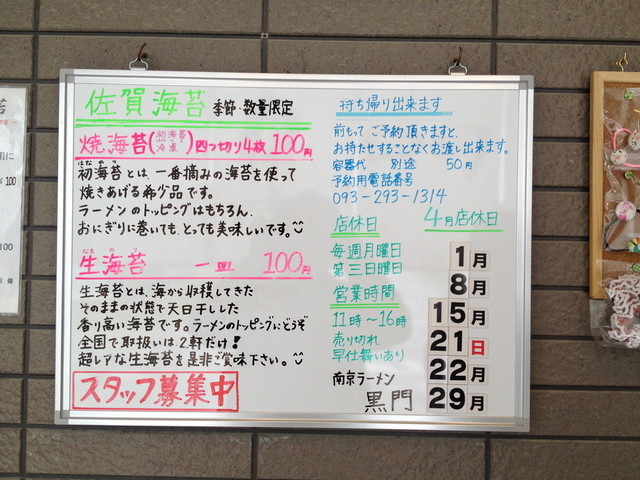 佐賀海苔 季節・数量限定
焼海苔(初海苔冷凍)四つ切り4枚 100円
初海苔とは、一番摘みの海苔を使って
焼きあげる希少品です。
ラーメンのトッピングはもちろん、
おにぎりに巻いても、とっても美味しいです。
生海苔 一皿 100円
生海苔とは、海から収穫してきた
そのままの状態で天日干しした
香り高い海苔です。ラーメンのトッピングにどうぞ
全国で取扱いは2軒だけ!
超レアな生海苔を是非ご賞味下さい。
スタッフ募集中
持ち帰り出来ます
前もってご予約頂きますと、
お待たせすることなくお渡し出来ます。
容器代 別途 50円
予約用電話番号
093-293-1314
店休日
毎週月曜日
第三日曜日
営業時間
11時〜16時
売り切れ
早仕舞いあり
南京ラーメン
黒門
4月店休日
1月
8月
15月
21日
22月
29月